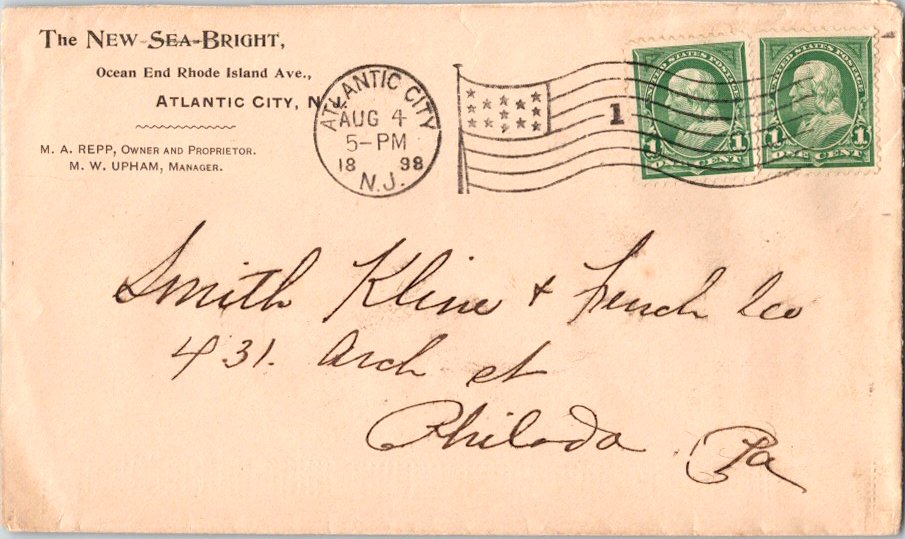 The NEW SEA-BRIGHT,
Ocean End Rhode Island Ave.,
ATLANTIC CITY, N.J.
M. A. REPP, OWNER AND PROPRIETOR.
M. W. UPHAM, MANAGER.
ATLANTIC CITY
AUG 4
5-PM
18 98
N.J.
1
UNITED STATES POSTAGE
1 1
ONE CENT
UNITED STATES POSTAGE
1 1
ONE CENT
Smith Kline & French Co
431. Arch st
Philada Pa